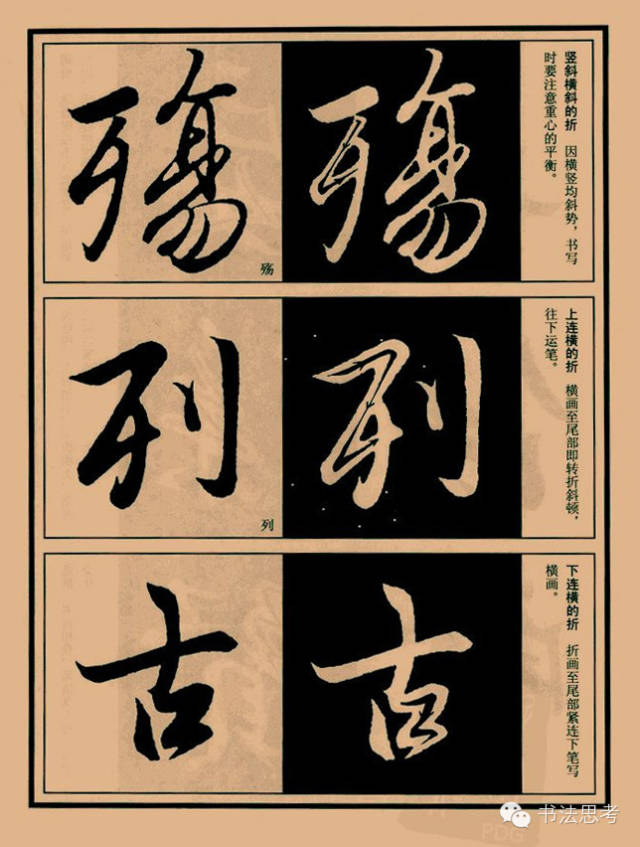 竖斜横斜的折　因横竖均斜势，书写
时要注意重心的平衡。
殇
殇
殇
上连横的折　横画至尾部即转折斜顿，
往下运笔。
列
列
列
下连横的折　折画至尾部紧连下笔写
横画。
古
古
书法思考
PDG